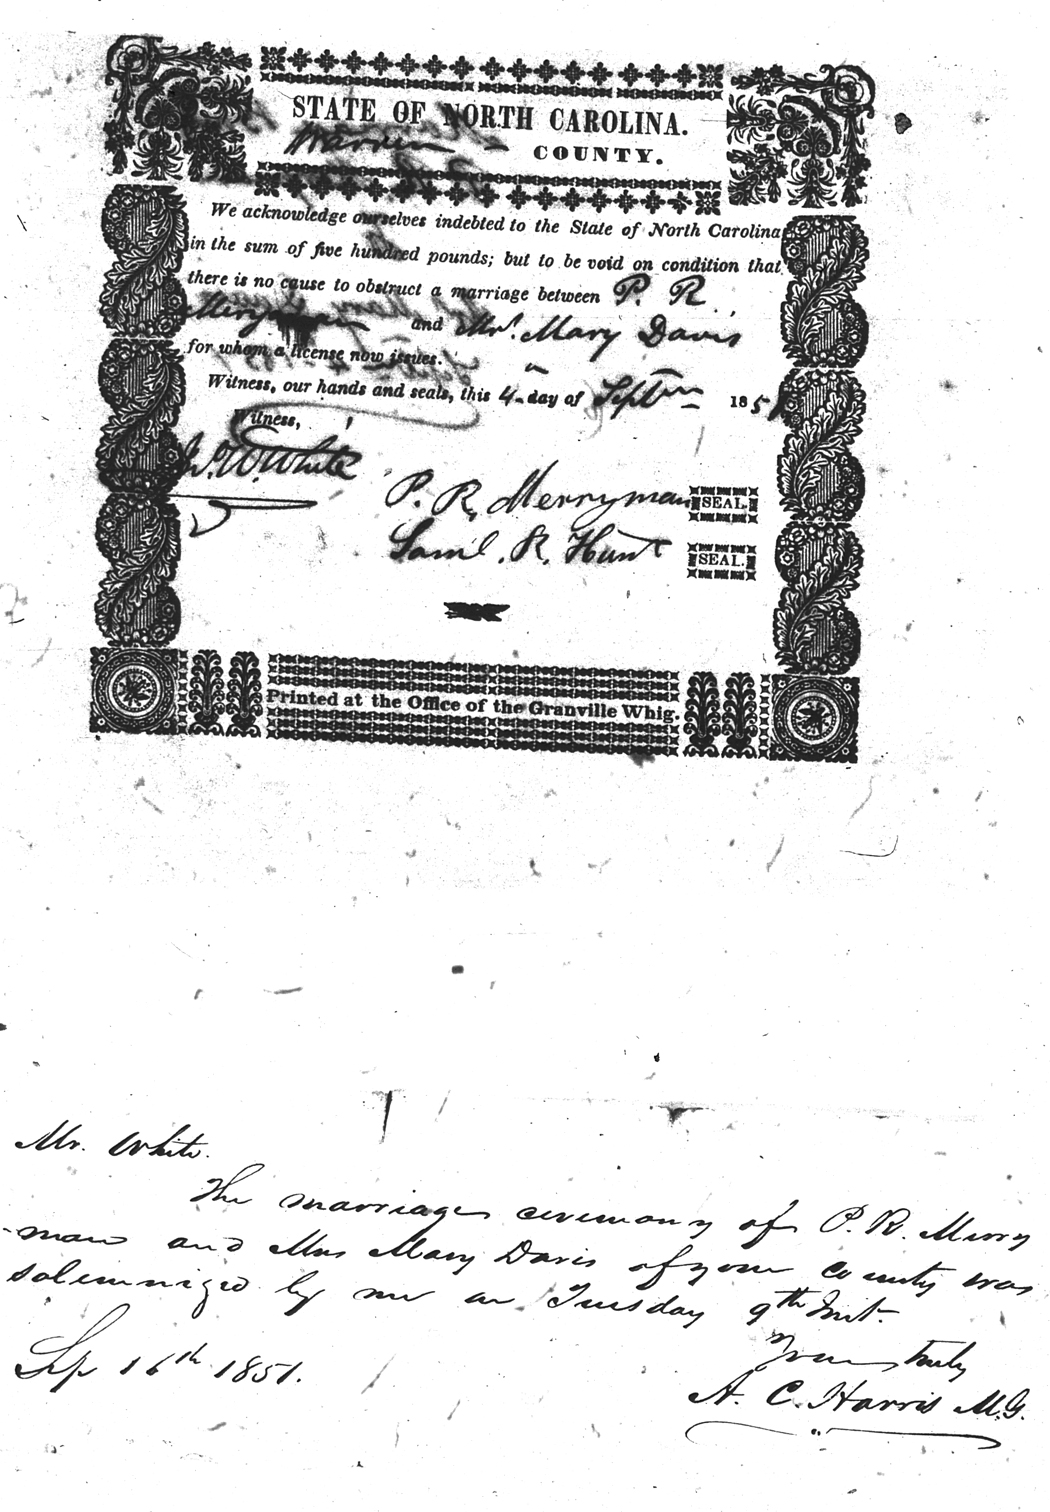 STATE OF NORTH CAROLINA.
Warren COUNTY.
We acknowledge ourselves indebted to the State of North Carolina
in the sum of five hundred pounds; but to be void on condition that
there is no cause to obstruct a marriage between P. R
Merryman and Mrs. Mary Davis
for whom a license now issues.
Witness, our hands and seals, this 4 day of Septem 1851
Witness,
W. White
P. R. Merryman SEAL.
Saml. R. Hunt SEAL.
Printed at the Office of the Granville Whig.
Mr. White.
The marriage ceremony of P. R. Merry
-man and Mrs Mary Davis of your county was
solemnized by me on Tuesday 9th Inst.
Yours truly
Sep 16th 1851.
A. C. Harris M.G.